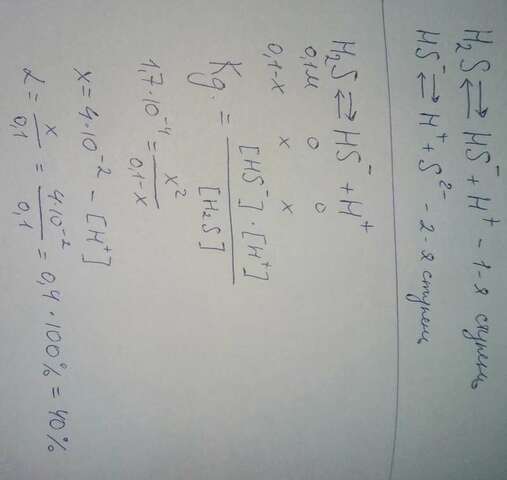 H₂S ⇄ HS⁻ + H⁺ - 1-я ступень
HS⁻ ⇄ H⁺ + S²⁻ - 2-я ступень
H₂S ⇄ HS⁻ + H⁺
0,1м 0 0
0,1-x x x
Kg. = [HS⁻]·[H⁺] / [H₂S]
1,7·10⁻⁴ = x² / 0,1-x
x = 4·10⁻² - [H⁺]
α = x / 0,1 = 4·10⁻² / 0,1 = 0,4 · 100% = 40%